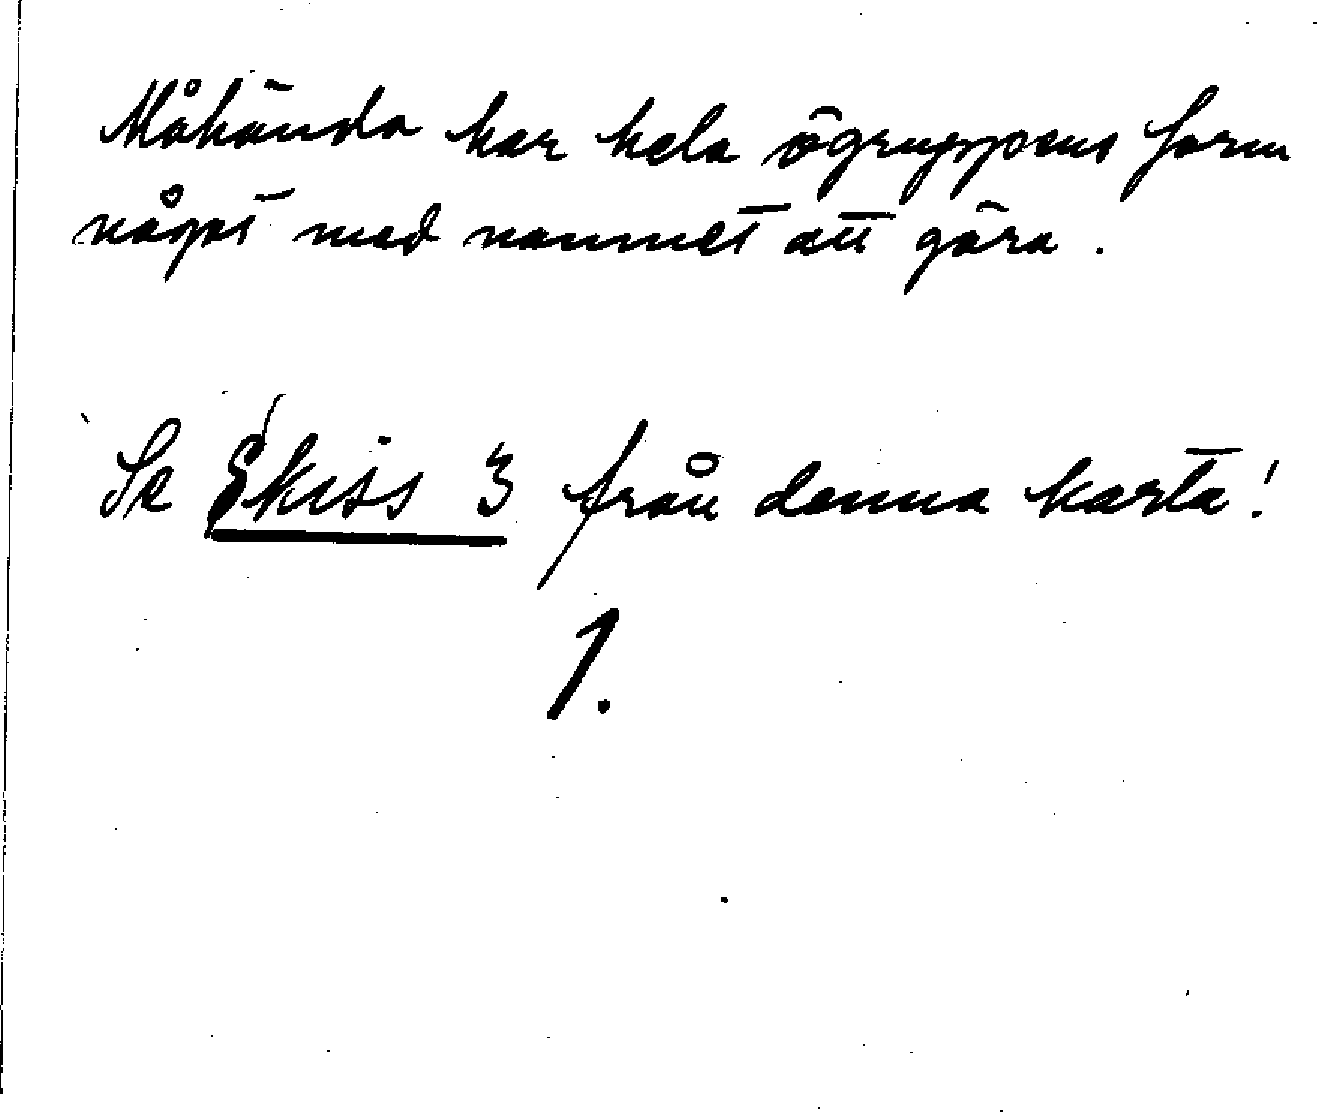 Måhända har hela ögruppens form
något med namnet att göra.
Se Skiss 3 från denna karta!
1.